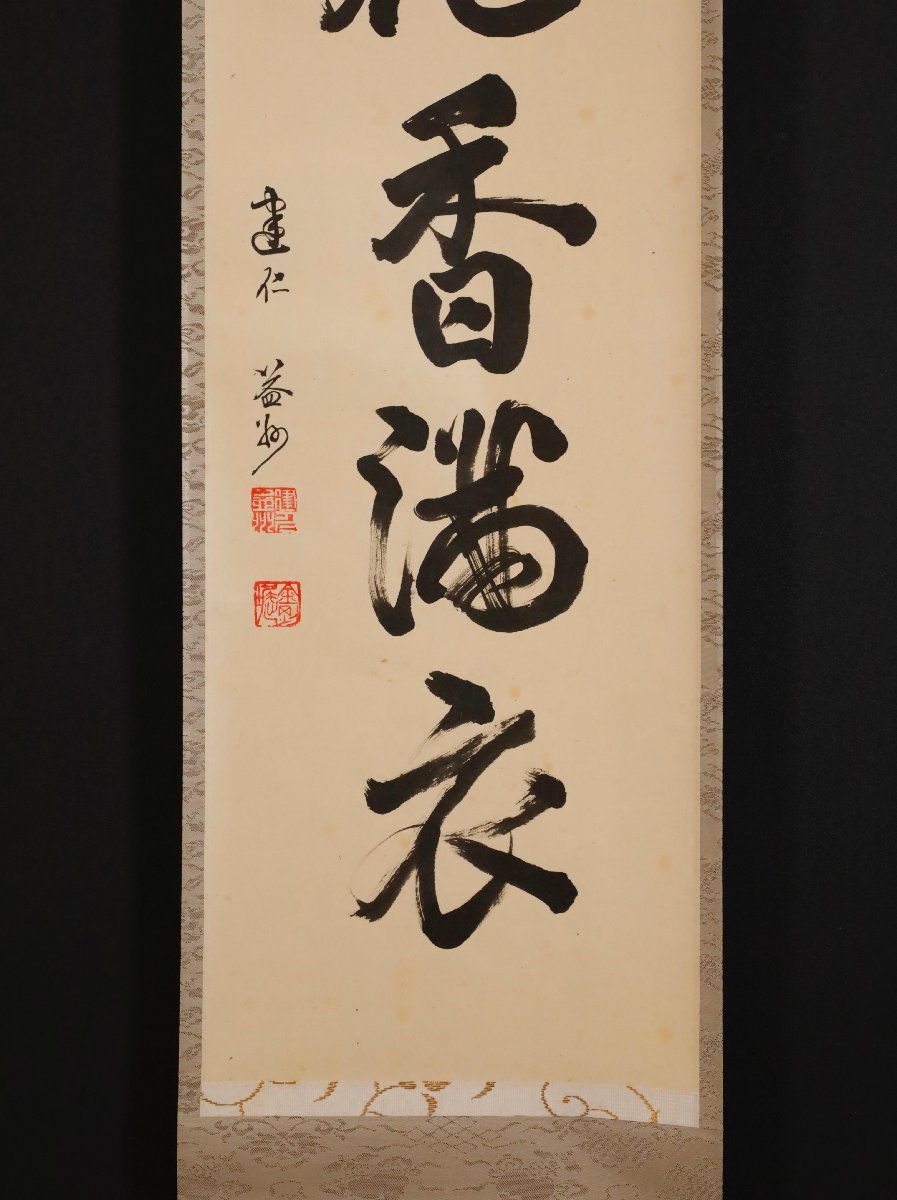 花香満衣
建仁 益州